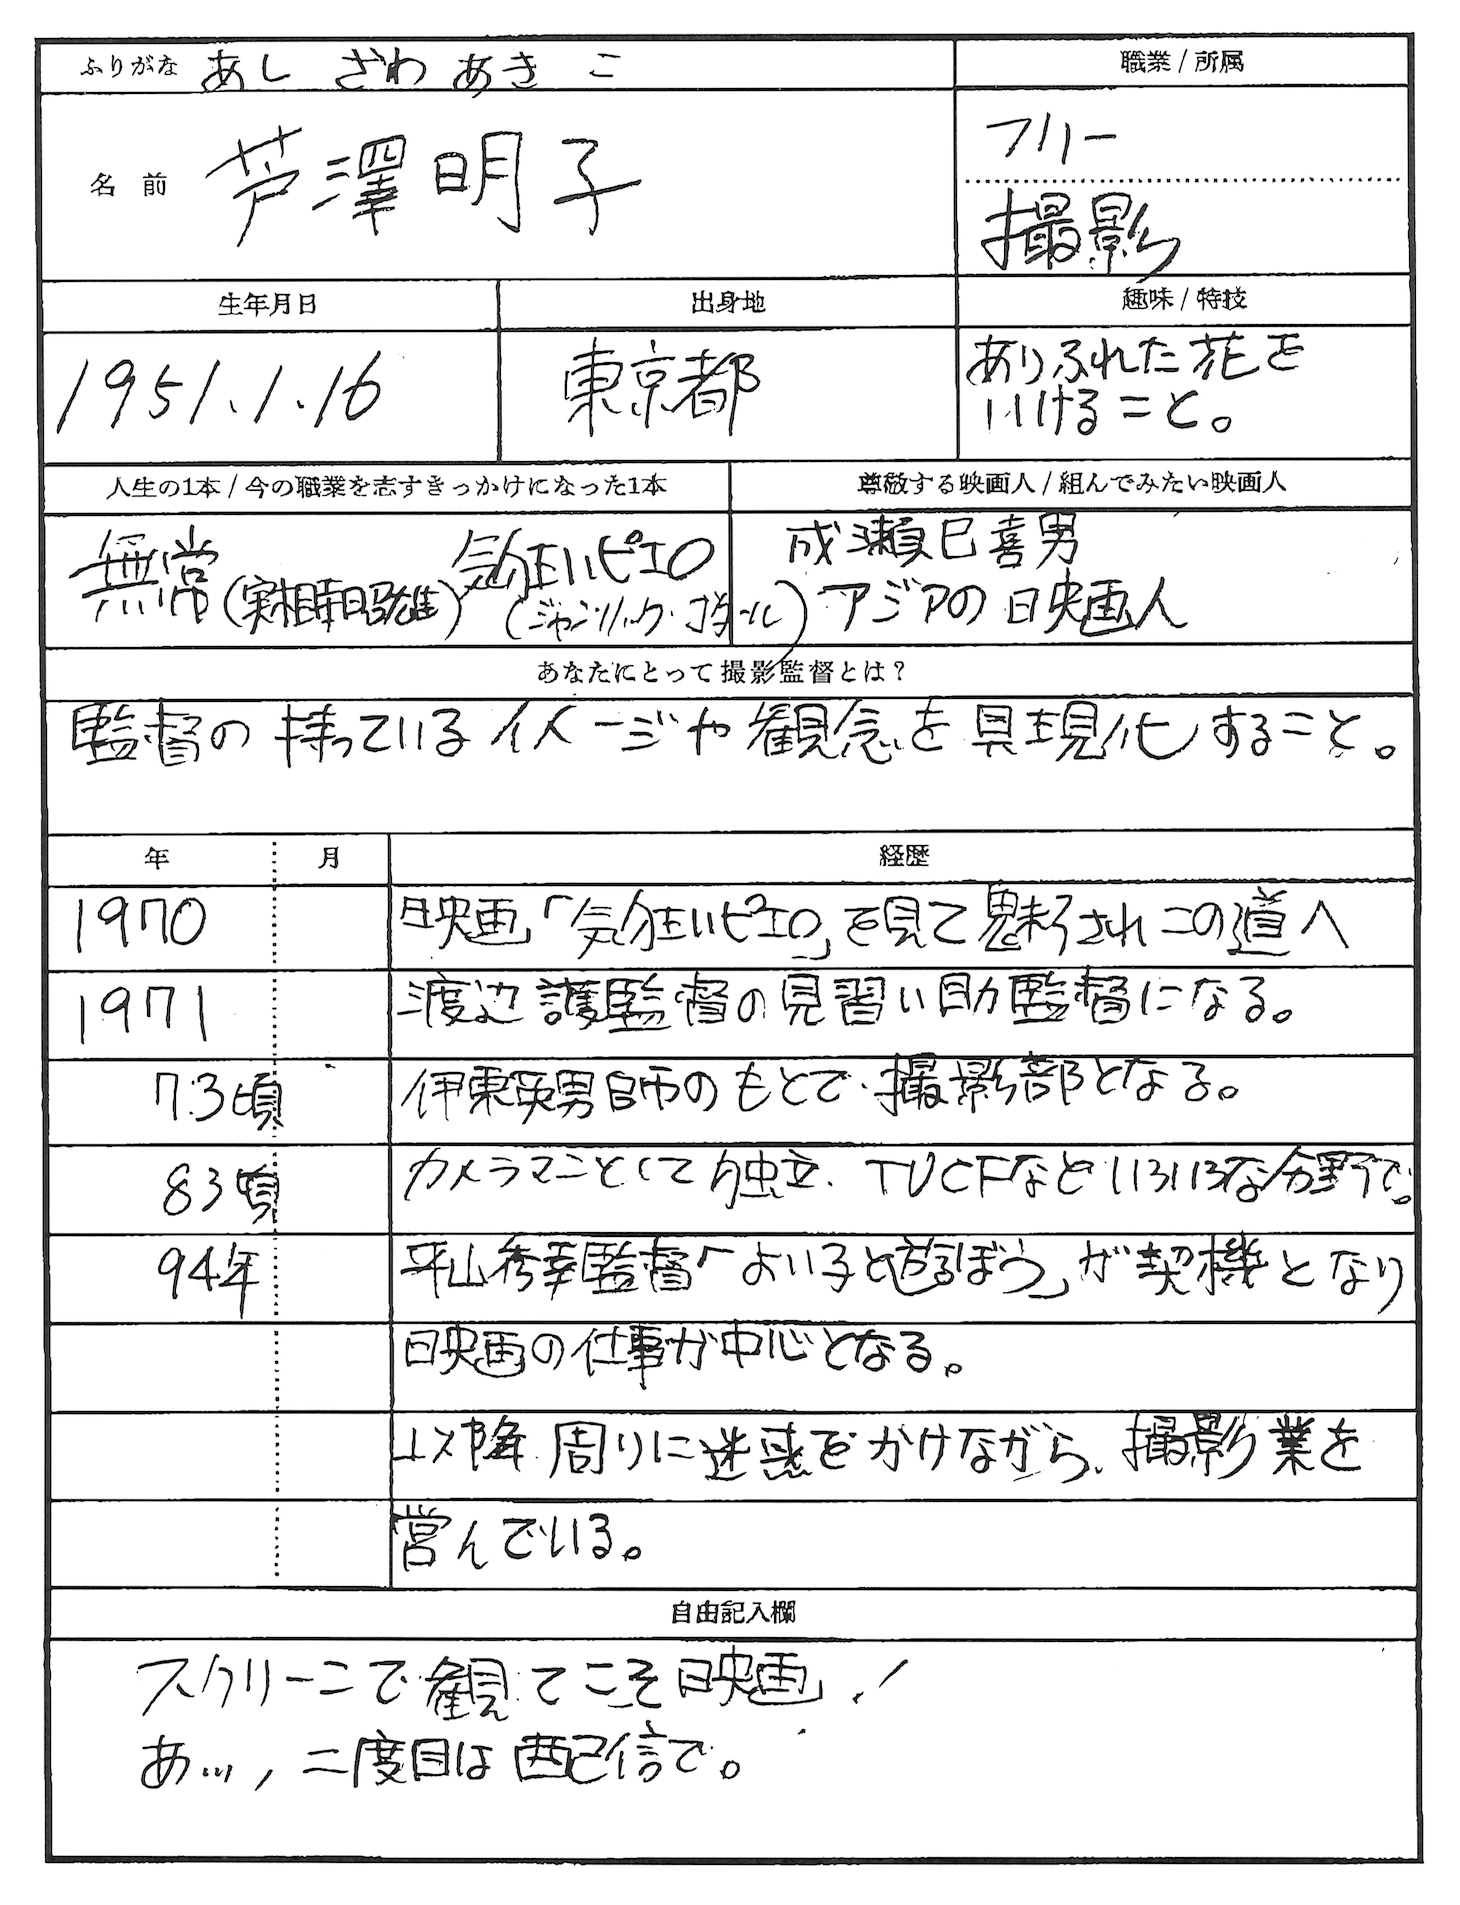 ふりがな あし ざわ あき こ
職業 / 所属
名 前 芦澤明子
フリー
撮影
生年月日
出身地
趣味 / 特技
1951.1.16
東京都
ありふれた花を
いけること。
人生の1本 / 今の職業を志すきっかけになった1本
尊敬する映画人 / 組んでみたい映画人
無常(実相寺昭雄)
気狂いピエロ
(ジャンリュック・ゴダール)
成瀬巳喜男
アジアの映画人
あなたにとって撮影監督とは？
監督の持っているイメージや観念を具現化すること。
年 月 経歴
1970 映画「気狂いピエロ」を見て魅了されこの道へ
1971 渡辺護監督の見習い助監督になる。
73頃 伊東英男師のもとで撮影部となる。
83頃 カメラマンとして独立. TVCFなどいろいろな分野で。
94年 平山秀幸監督「よい子と遊ぼう」が契機となり
映画の仕事が中心となる。
以降 周りに迷惑をかけながら、撮影業を
営んでいる。
自由記入欄
スクリーンで観てこそ映画！
あ…, 二度目は配信で。